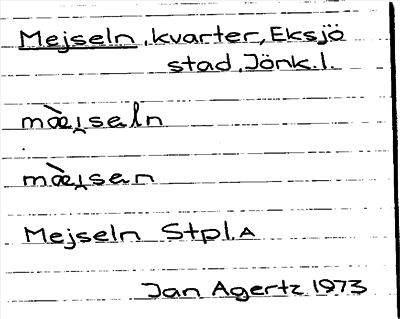 Mejseln, kvarter, Eksjö
stad, Jönk.l.
mæ̀i̯seln
mæ̀i̯sen
Mejseln Stpl.A
Jan Agertz 1973